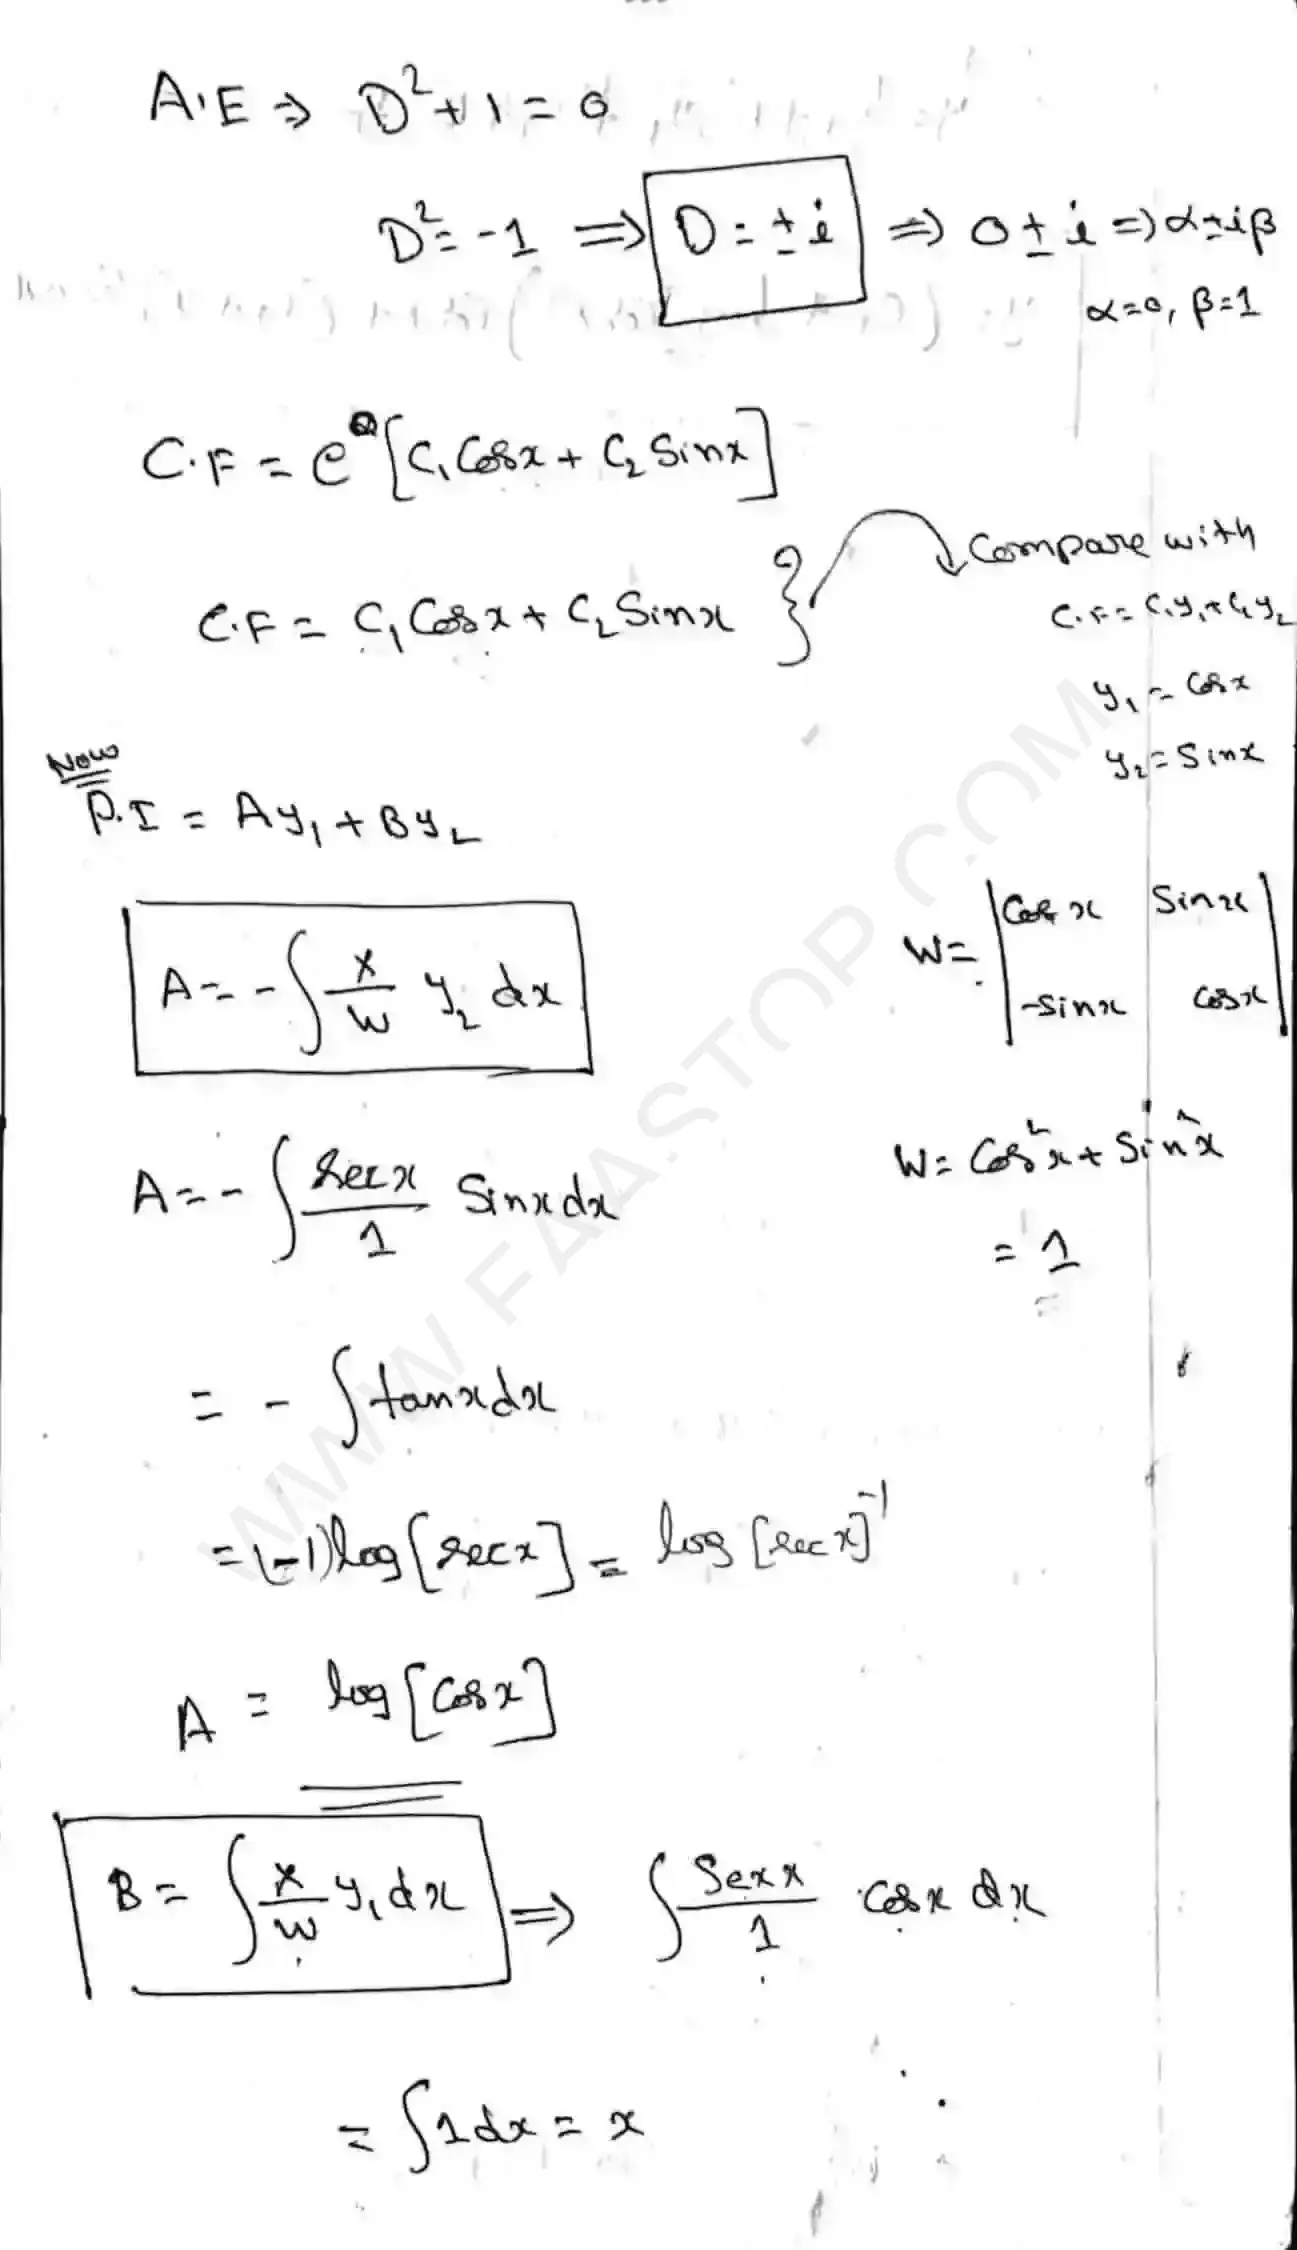 A.E ⇒ D²+1=0
D²=-1 ⇒ D=±i ⇒ 0±i ⇒ α±iβ
α=0, β=1
C.F = e⁰[C₁Cosx + C₂Sinx]
C.F = C₁Cosx + C₂Sinx
Compare with
C.F = C₁y₁+C₂y₂
y₁ = Cosx
y₂ = Sinx
Now
P.I = Ay₁ + By₂
A = -∫ X/W y₂ dx
W = |Cosx Sinx|
|-sinx cosx|
A = -∫ secx/1 Sinxdx
W = Cos²x + Sin²x
= 1
= -∫tanxdx
= (-1)log[secx] = log[secx]⁻¹
A = log[Cosx]
B = ∫ X/W y₁dx ⇒ ∫ Sexx/1 cosx dx
= ∫1dx = x
WWW.FAASTOP.COM